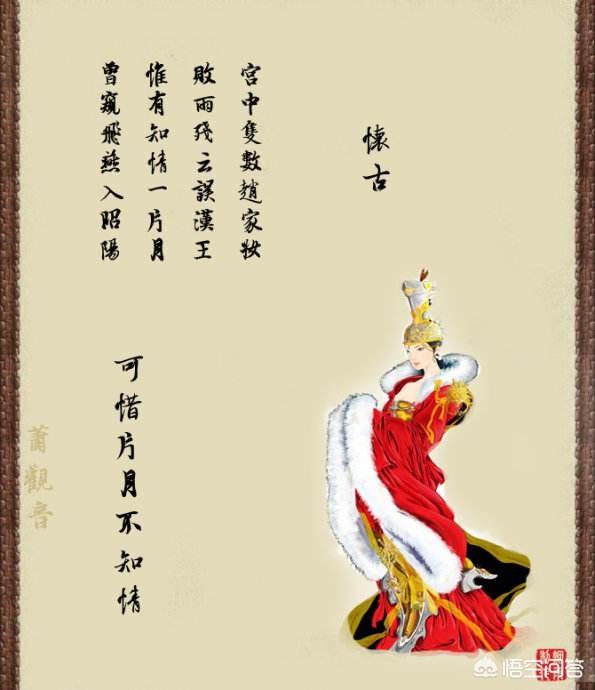 懷古
宮中隻數趙家妝
敗雨殘云誤漢王
惟有知情一片月
曾窺飛燕入昭陽
可惜片月不知情
蕭觀音
悟空问答